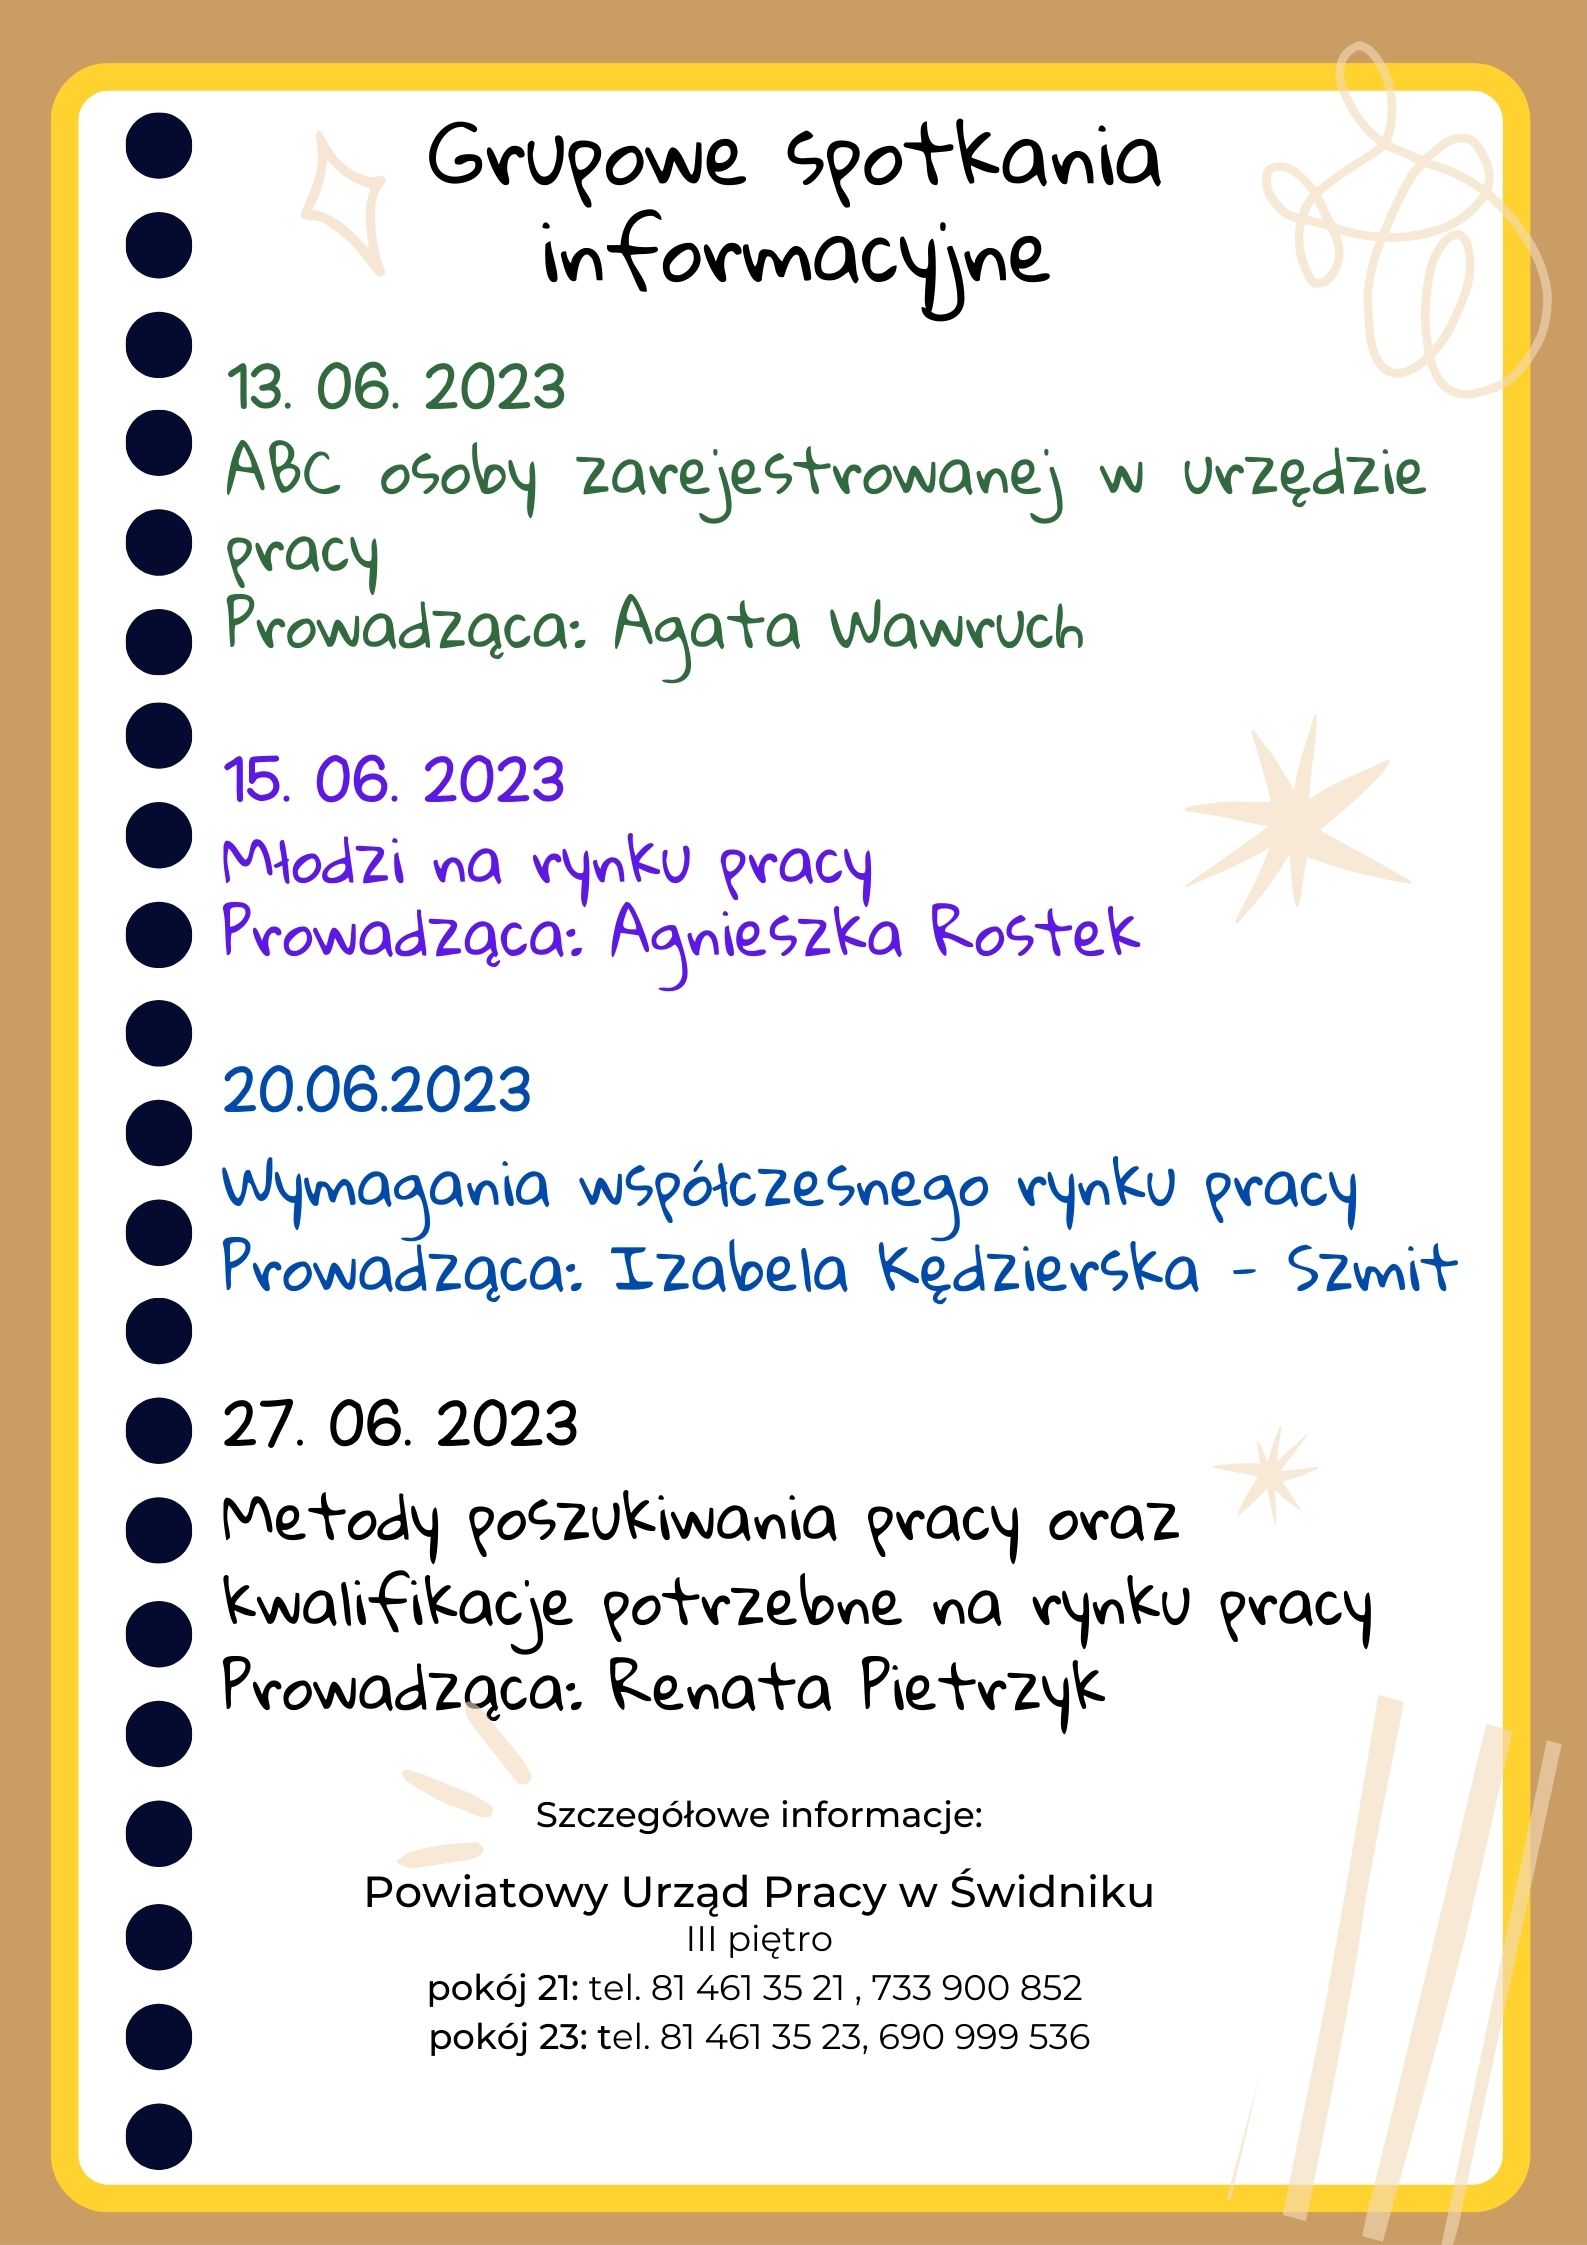 Grupowe spotkania
informacyjne
13. 06. 2023
ABC osoby zarejestrowanej w urzędzie
pracy
Prowadząca: Agata Wawruch
15. 06. 2023
Młodzi na rynku pracy
Prowadząca: Agnieszka Rostek
20.06.2023
Wymagania współczesnego rynku pracy
Prowadząca: Izabela Kędzierska - Szmit
27. 06. 2023
Metody poszukiwania pracy oraz
kwalifikacje potrzebne na rynku pracy
Prowadząca: Renata Pietrzyk
Szczegółowe informacje:
Powiatowy Urząd Pracy w Świdniku
III piętro
pokój 21: tel. 81 461 35 21 , 733 900 852
pokój 23: tel. 81 461 35 23, 690 999 536